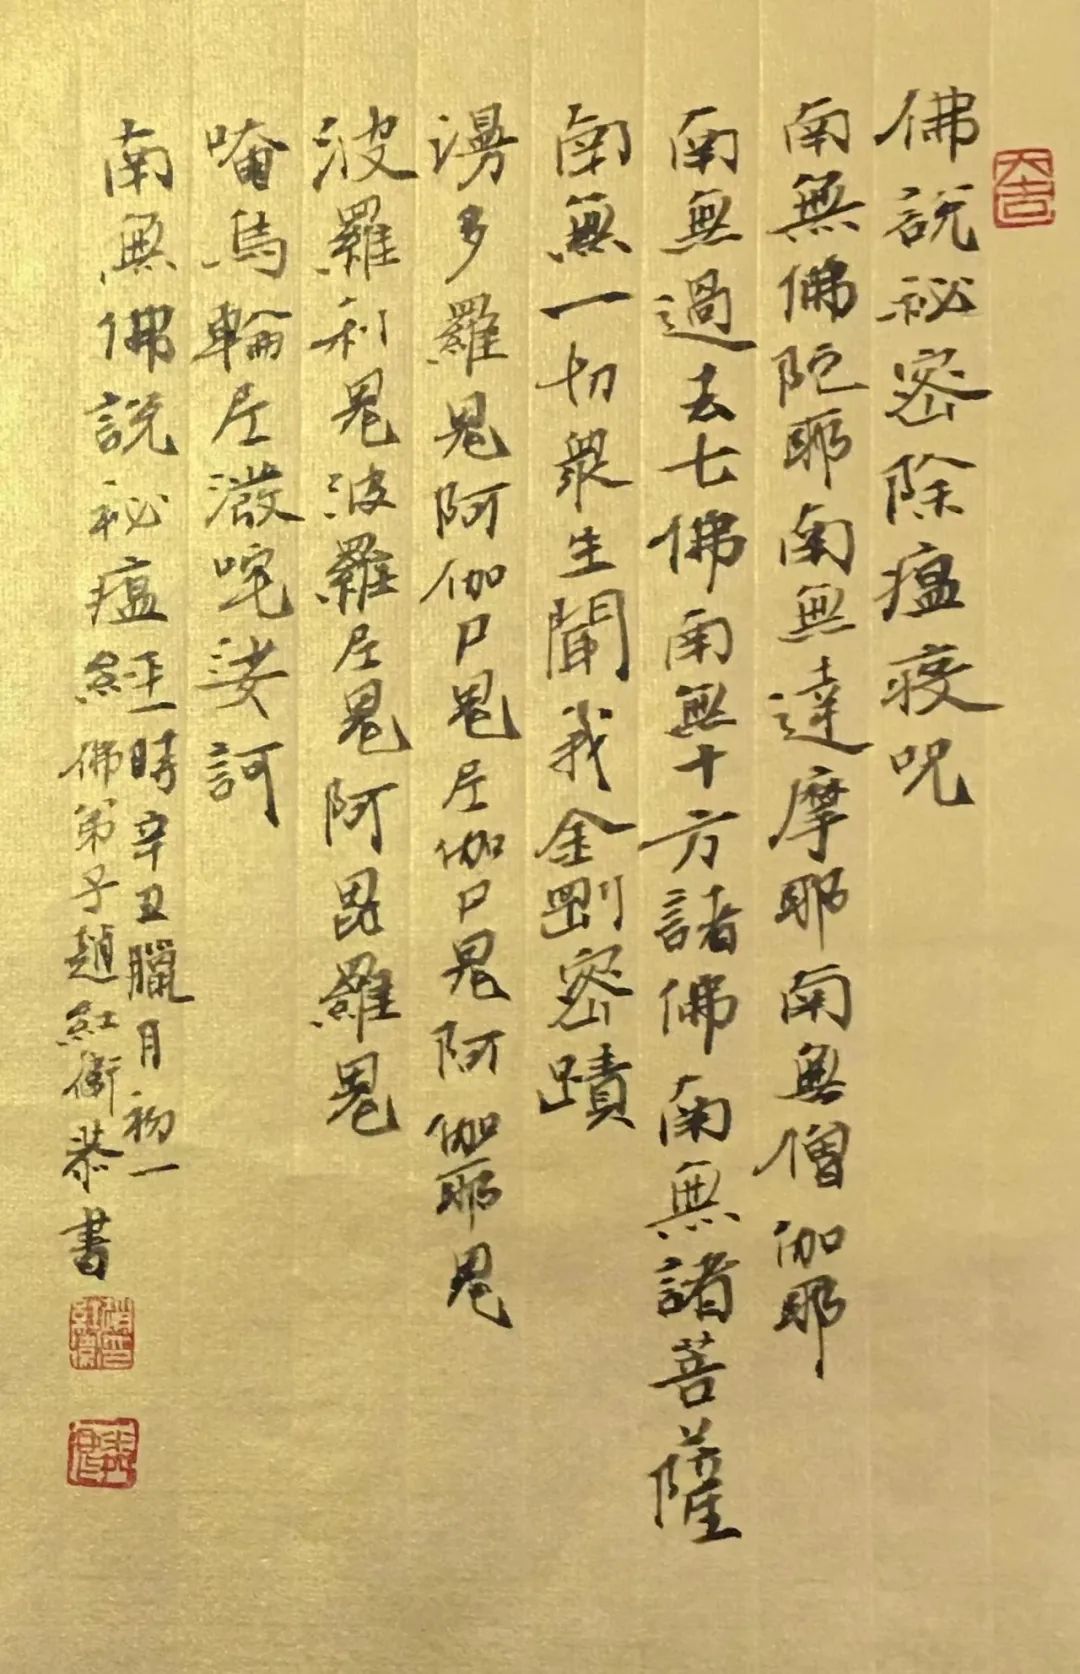 大吉
佛說祕密除瘟疫咒
南無佛陀耶南無達摩耶南無僧伽耶
南無過去七佛南無十方諸佛南無諸菩薩
南無一切眾生聞我金剛密蹟
漫多羅鬼阿伽尸鬼尼伽尸鬼阿伽耶鬼
波羅利鬼波羅尼鬼阿毘羅鬼
唵烏輪尼潑咤娑訶
南無佛說祕瘟經時辛丑臘月初一
佛弟子趙紅衛恭書